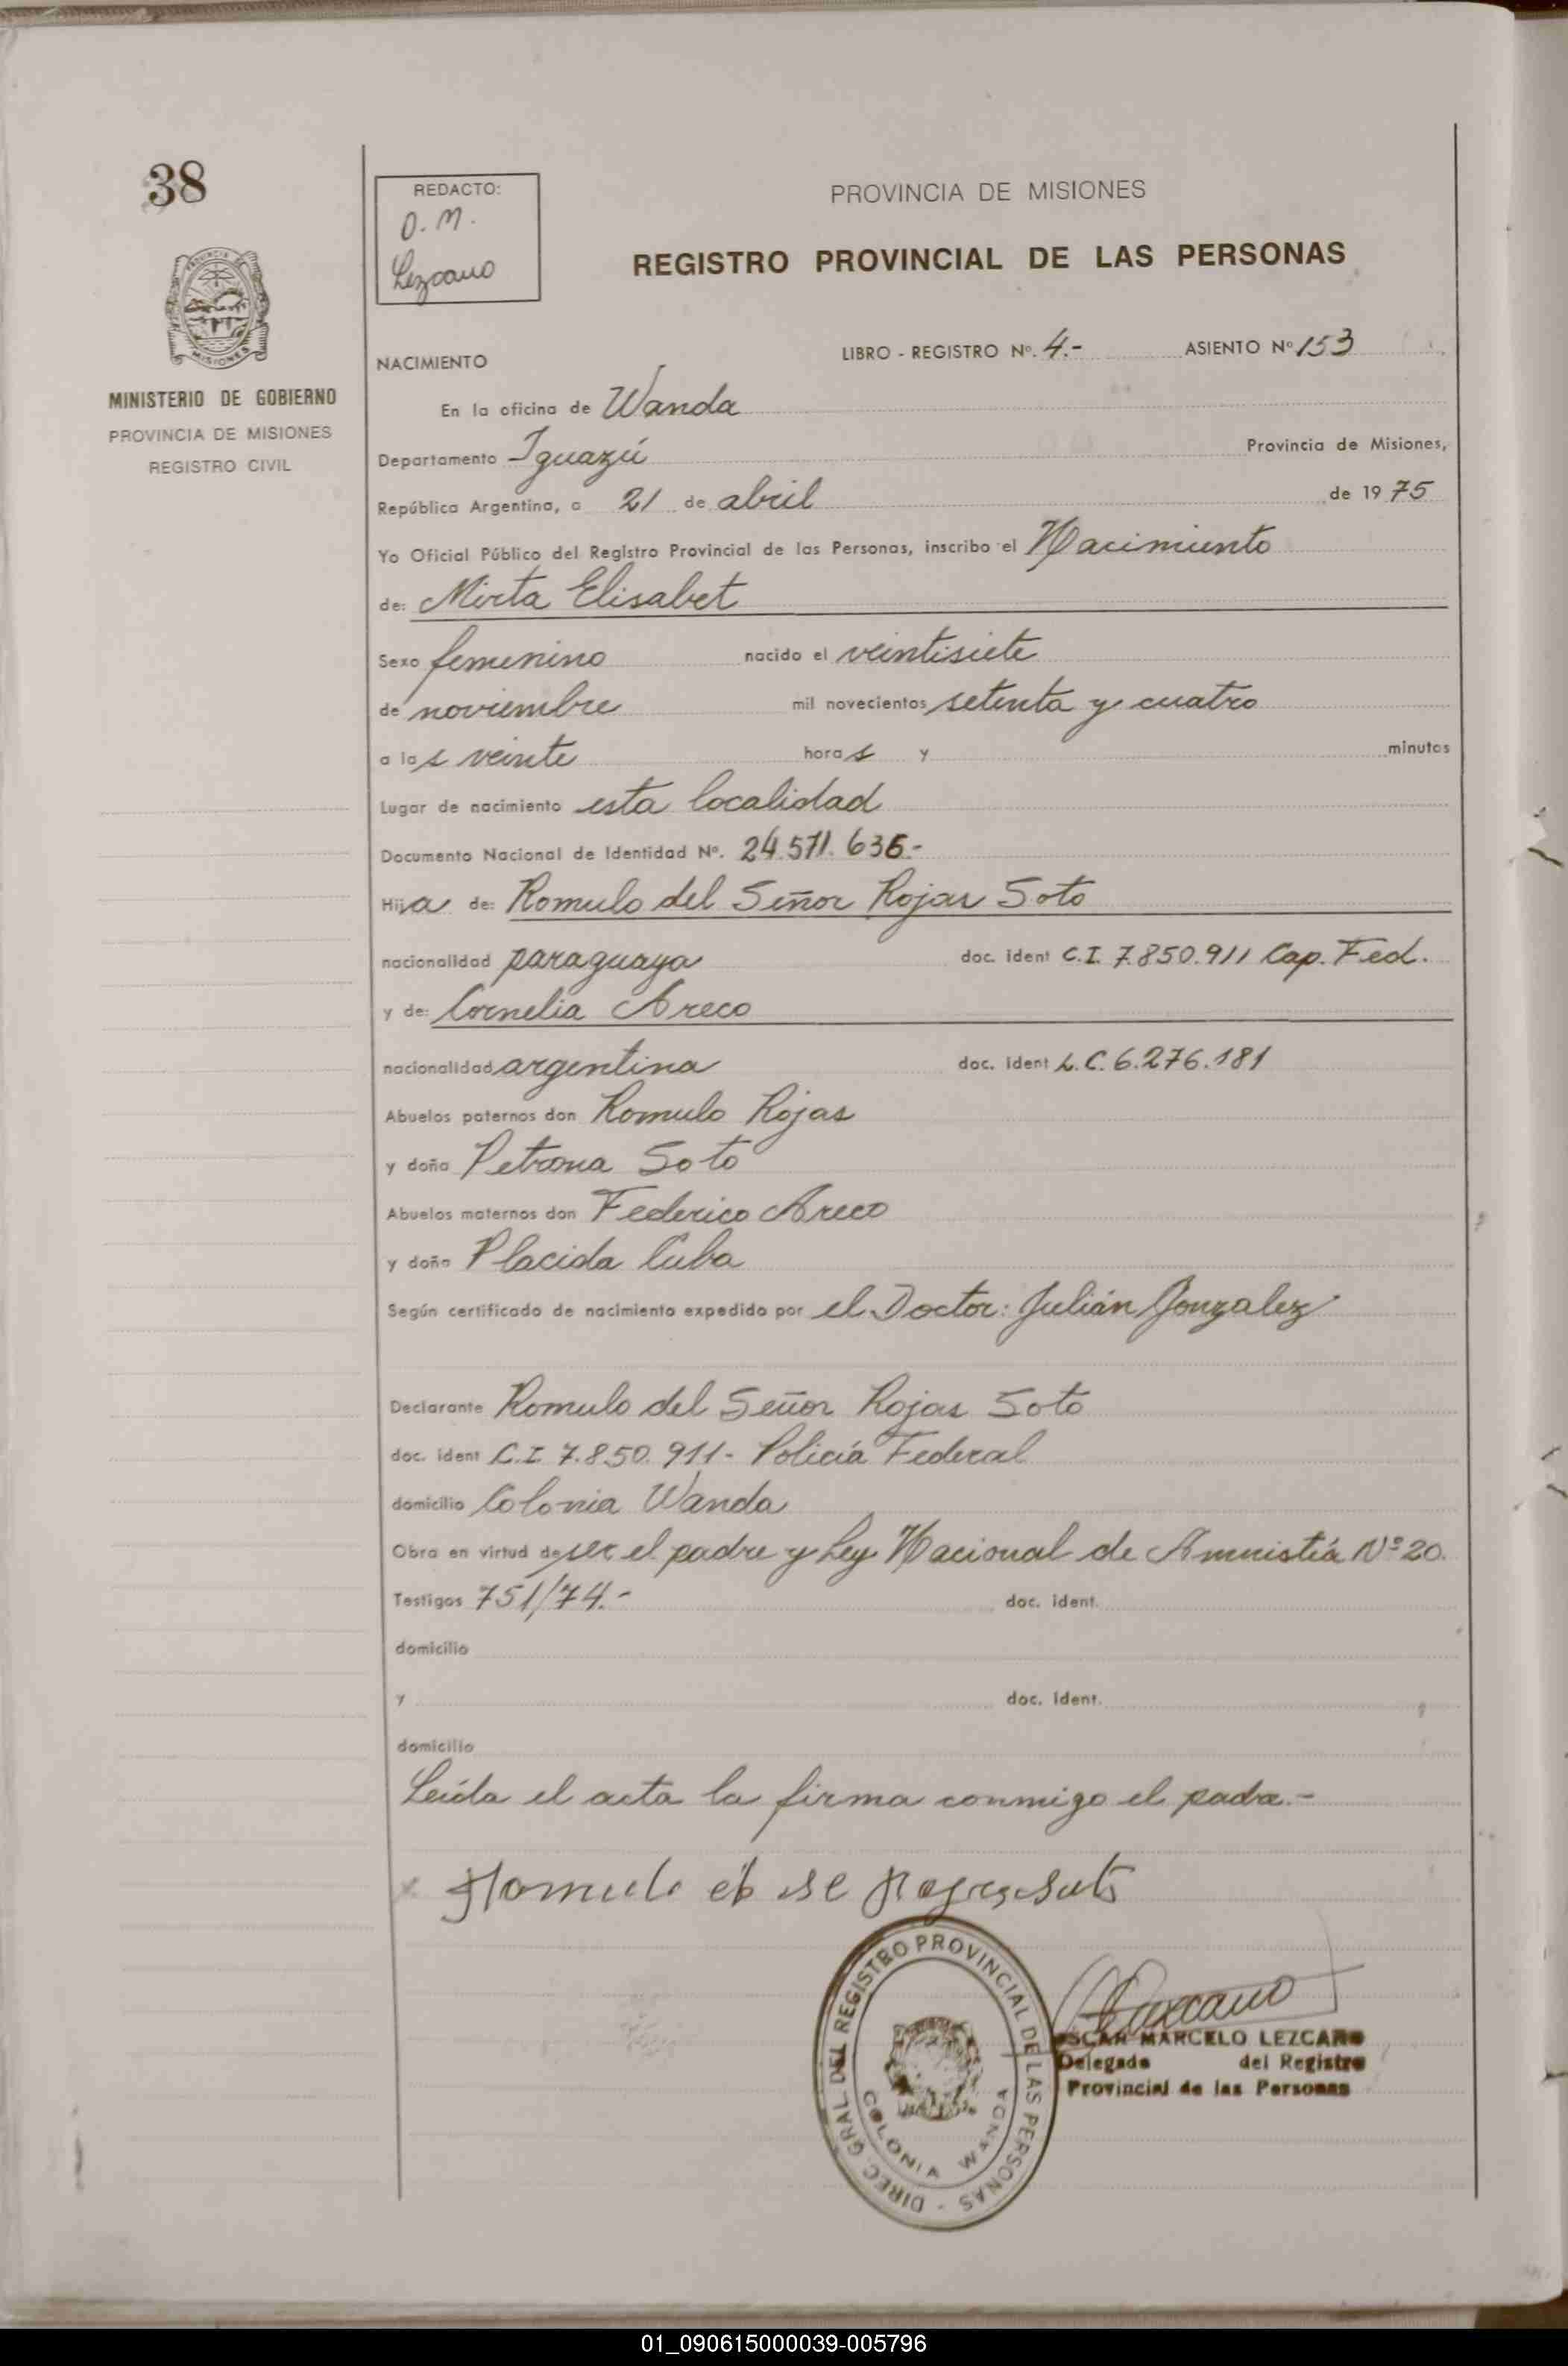 38
REDACTO:
O. M.
Lezcano
PROVINCIA DE MISIONES
REGISTRO PROVINCIAL DE LAS PERSONAS
PROVINCIA DE
MISIONES
MINISTERIO DE GOBIERNO
PROVINCIA DE MISIONES
REGISTRO CIVIL
NACIMIENTO LIBRO - REGISTRO Nº. 4.- ASIENTO Nº 153
En la oficina de Wanda
Departamento Iguazú Provincia de Misiones,
República Argentina, a 21 de abril de 1975
Yo Oficial Público del Registro Provincial de las Personas, inscribo el Nacimiento
de: Mirta Elisabet
Sexo femenino nacido el veintisiete
de noviembre mil novecientos setenta y cuatro
a las veinte horas y minutos
Lugar de nacimiento esta localidad
Documento Nacional de Identidad Nº. 24.571.636.-
Hija de: Romulo del Señor Rojas Soto
nacionalidad paraguaya doc. ident C.I. 7.850.911 Cap. Fed.
y de: Cornelia Areco
nacionalidad argentina doc. ident L.C. 6.276.181
Abuelos paternos don Romulo Rojas
y doña Petrona Soto
Abuelos maternos don Federico Areco
y doña Placida Cuba
Según certificado de nacimiento expedido por el Doctor: Julián Gonzalez
Declarante Romulo del Señor Rojas Soto
doc. ident C.I. 7.850.911- Policía Federal
domicilio Colonia Wanda
Obra en virtud de ser el padre y Ley Nacional de Amnistía Nº 20.
Testigos 751/74.- doc. ident.
domicilio
y doc. ident.
domicilio
Leída el acta la firma conmigo el padre.-
DIREC. GRAL DEL REGISTRO PROVINCIAL DE LAS PERSONAS -
COLONIA WANDA
Lezcano
OSCAR MARCELO LEZCANO
Delegado del Registro
Provincial de las Personas
01_090615000039-005796